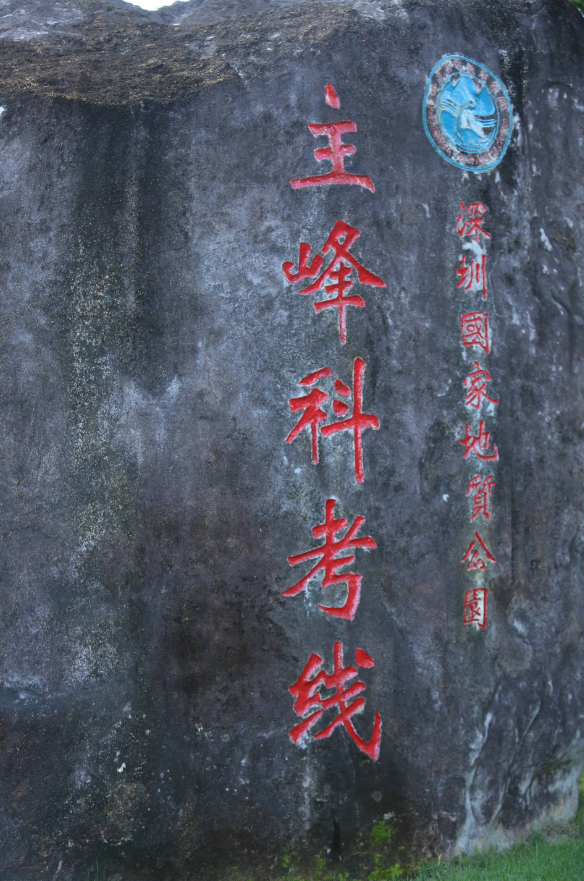 深圳國家地質公園
主峰科考线